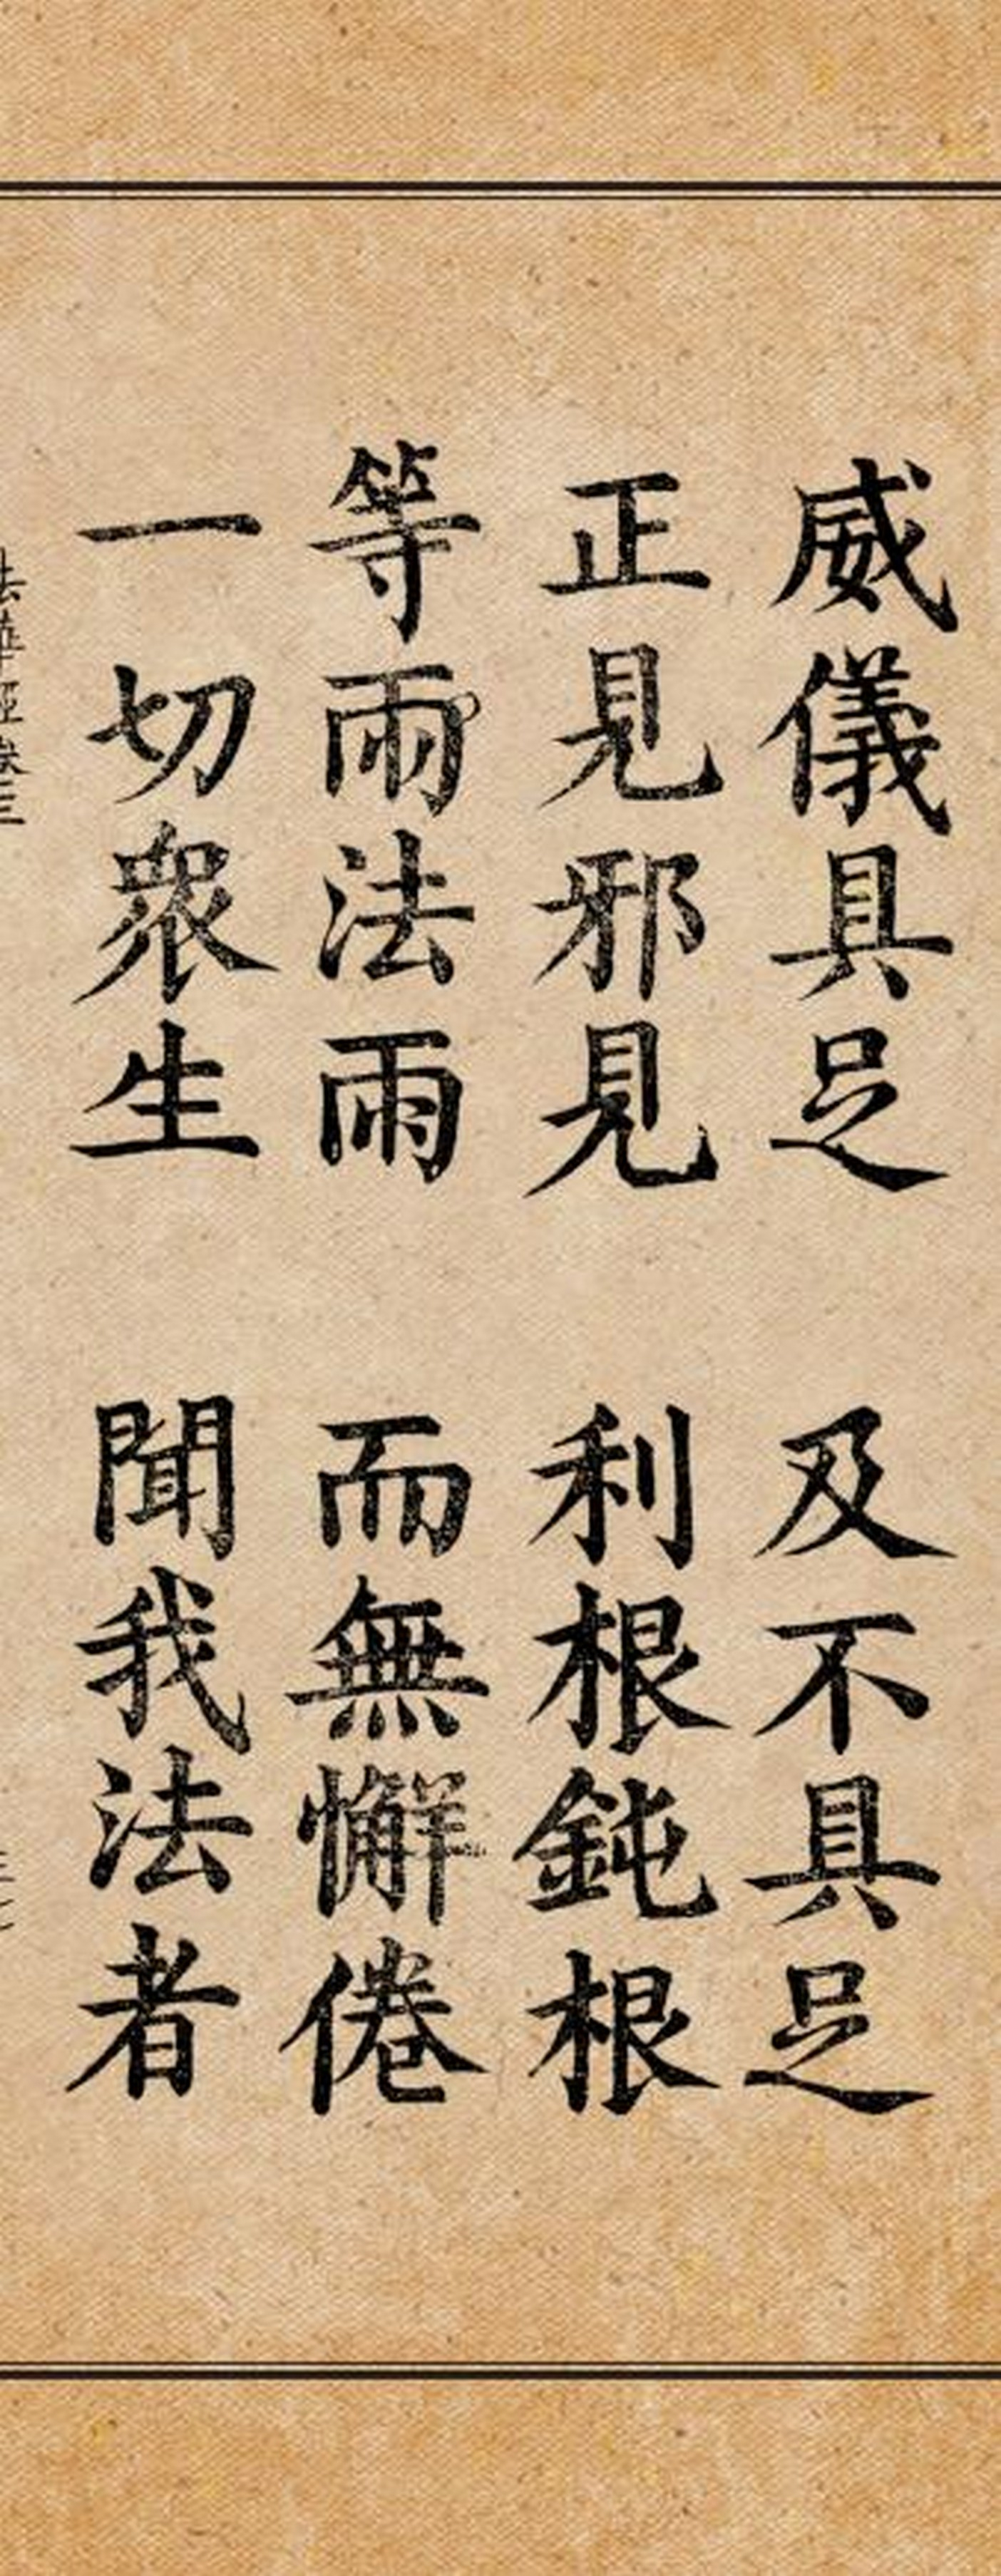 威儀具足 及不具足
正見邪見 利根鈍根
等雨法雨 而無懈倦
一切眾生 聞我法者
法華經卷三